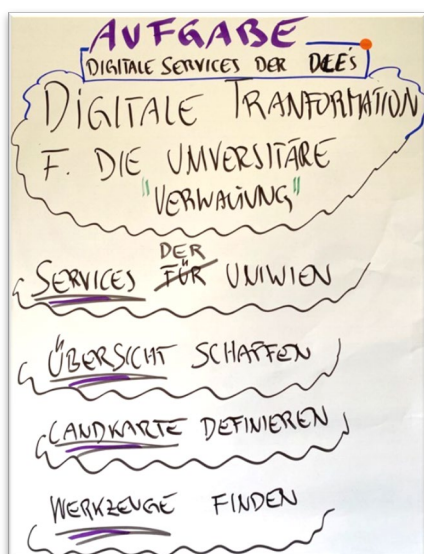 AUFGABE
DIGITALE SERVICES DER DLE's
DIGITALE TRANFORMATION
F. DIE UNIVERSITÄRE
"VERWALTUNG"
DER
SERVICES FÜR UNIWIEN
ÜBERSICHT SCHAFFEN
LANDKARTE DEFINIEREN
WERKZEUGE FINDEN